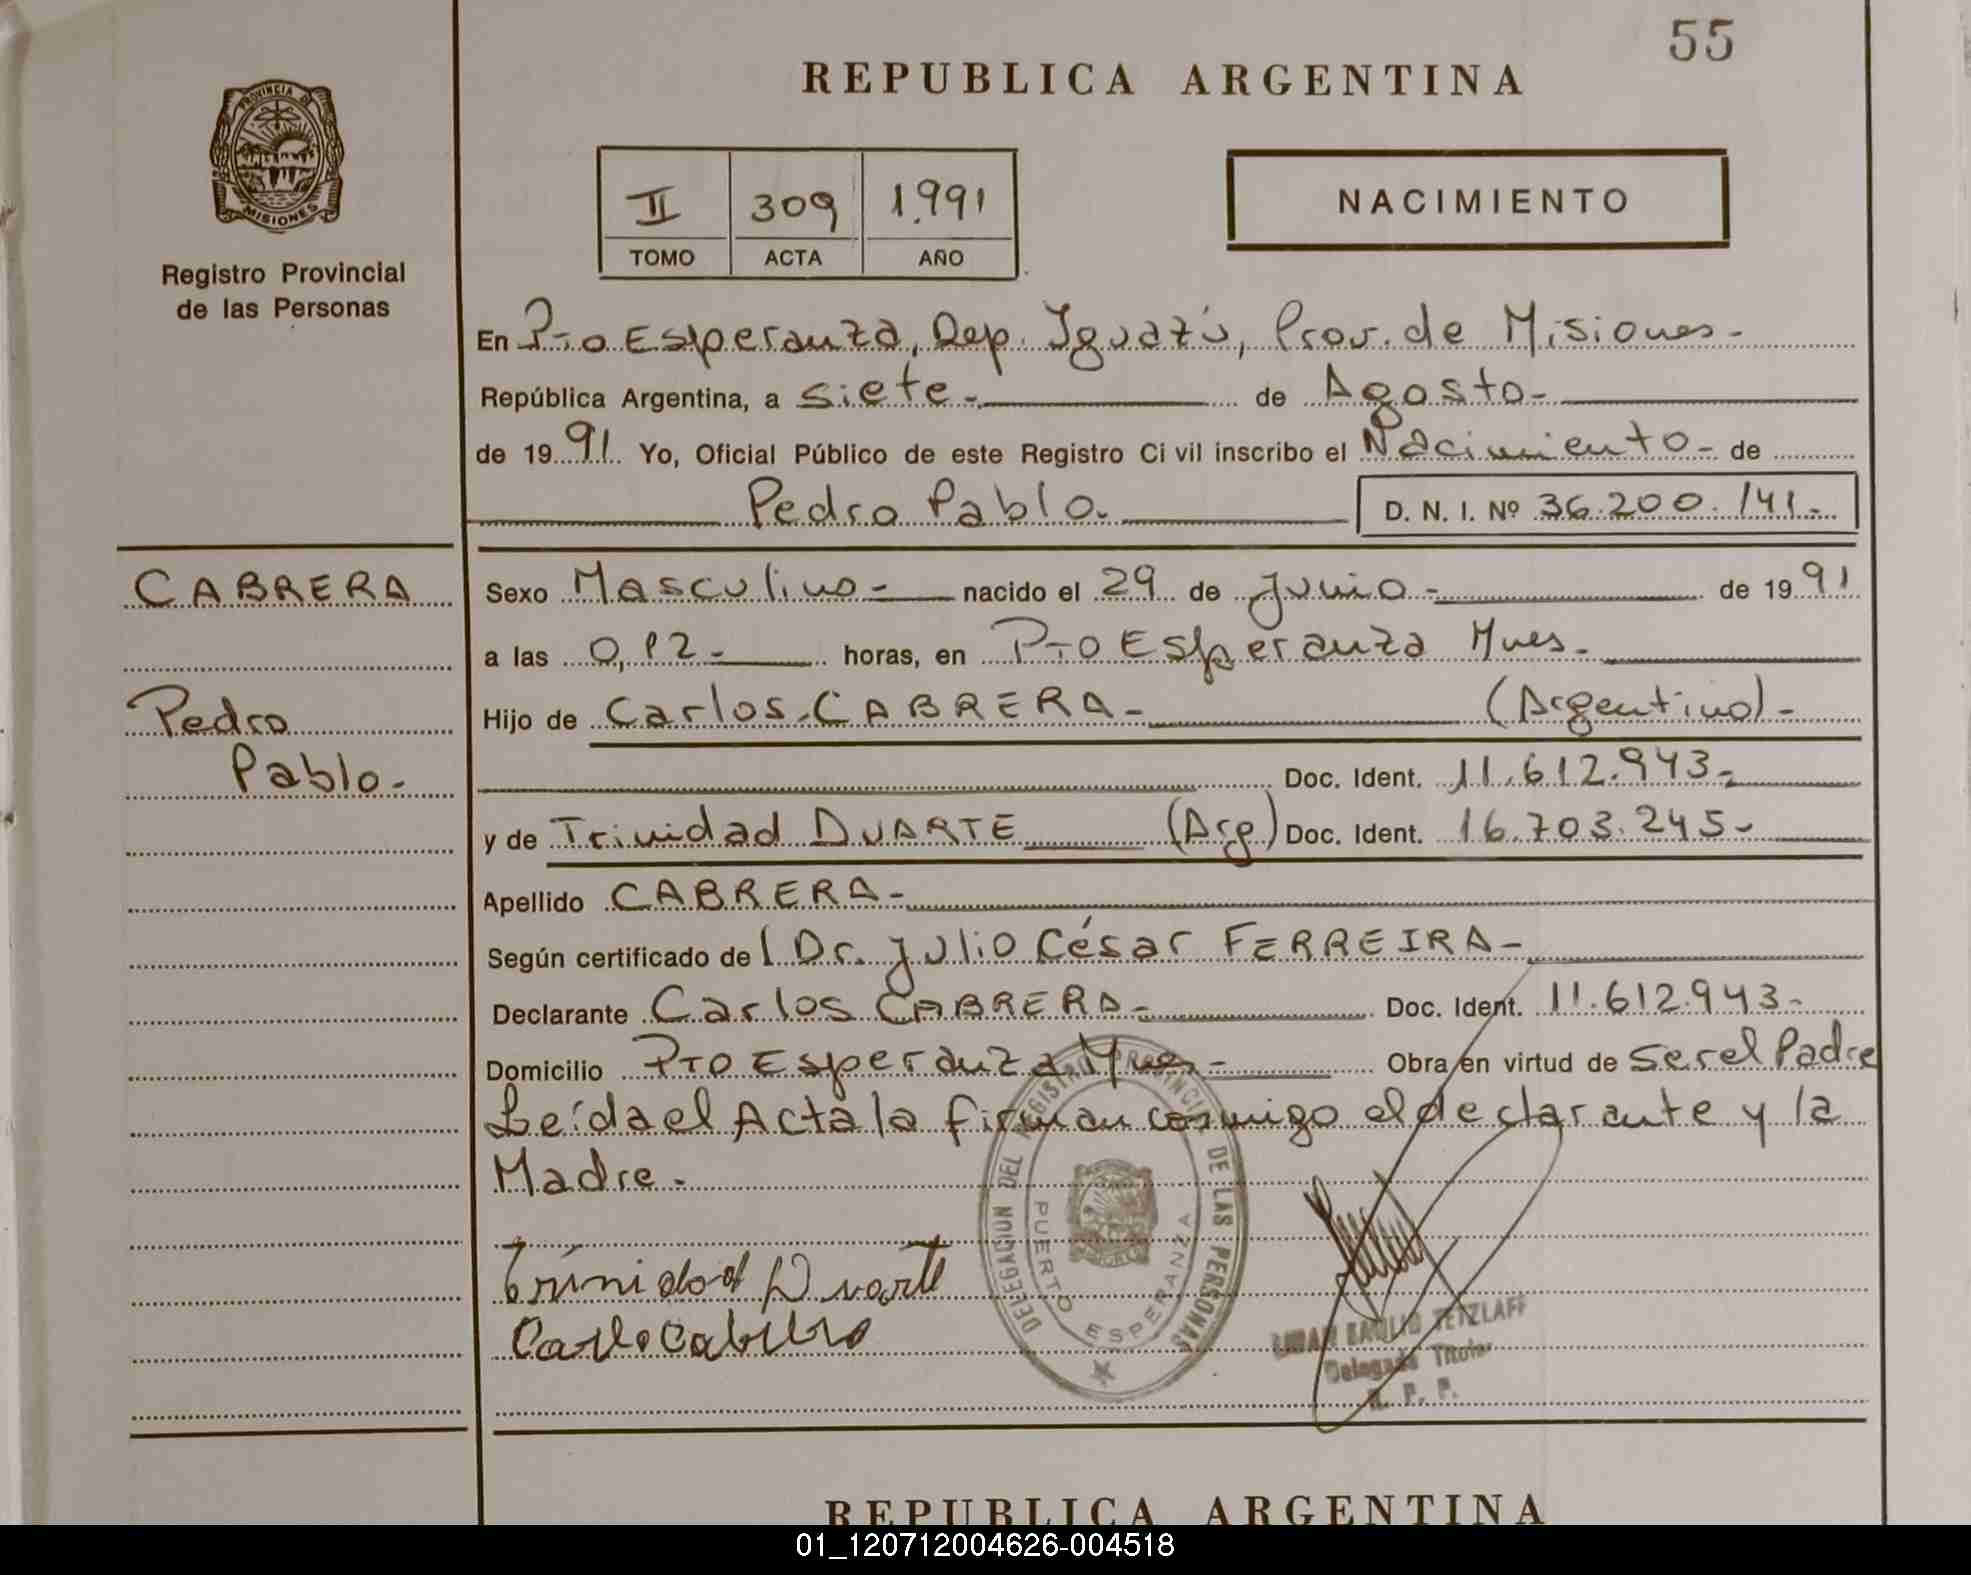 55
REPUBLICA ARGENTINA
PROVINCIA DE
MISIONES
Registro Provincial
de las Personas
II 309 1.991
TOMO ACTA AÑO
NACIMIENTO
En Pto Esperanza, Dep. Iguazú, Prov. de Misiones-
República Argentina, a siete- de Agosto-
de 1991. Yo, Oficial Público de este Registro Civil inscribo el Nacimiento- de
Pedro Pablo. D. N. I. Nº 36.200.141.-
CABRERA
Pedro
Pablo.-
Sexo Masculino- nacido el 29 de Junio- de 1991
a las 0,12- horas, en Pto Esperanza Mnes.-
Hijo de Carlos CABRERA- (Argentino)-
Doc. Ident. 11.612.943-
y de Trinidad DUARTE (Arg) Doc. Ident. 16.703.245-
Apellido CABRERA-
Según certificado del Dr. Julio César FERREIRA-
Declarante Carlos CABRERA- Doc. Ident. 11.612.943-
Domicilio Pto Esperanza Mnes- Obra en virtud de ser el Padre
Leída el Acta la firman conmigo el declarante y la
Madre.-
Trinidad Duarte
Carlo Cabrera
DELEGACION DEL REGISTRO PROVINCIAL DE LAS PERSONAS
PUERTO ESPERANZA
TETZLAFF
Delegado Titular
R. P. P.
REPUBLICA ARGENTINA
01_120712004626-004518